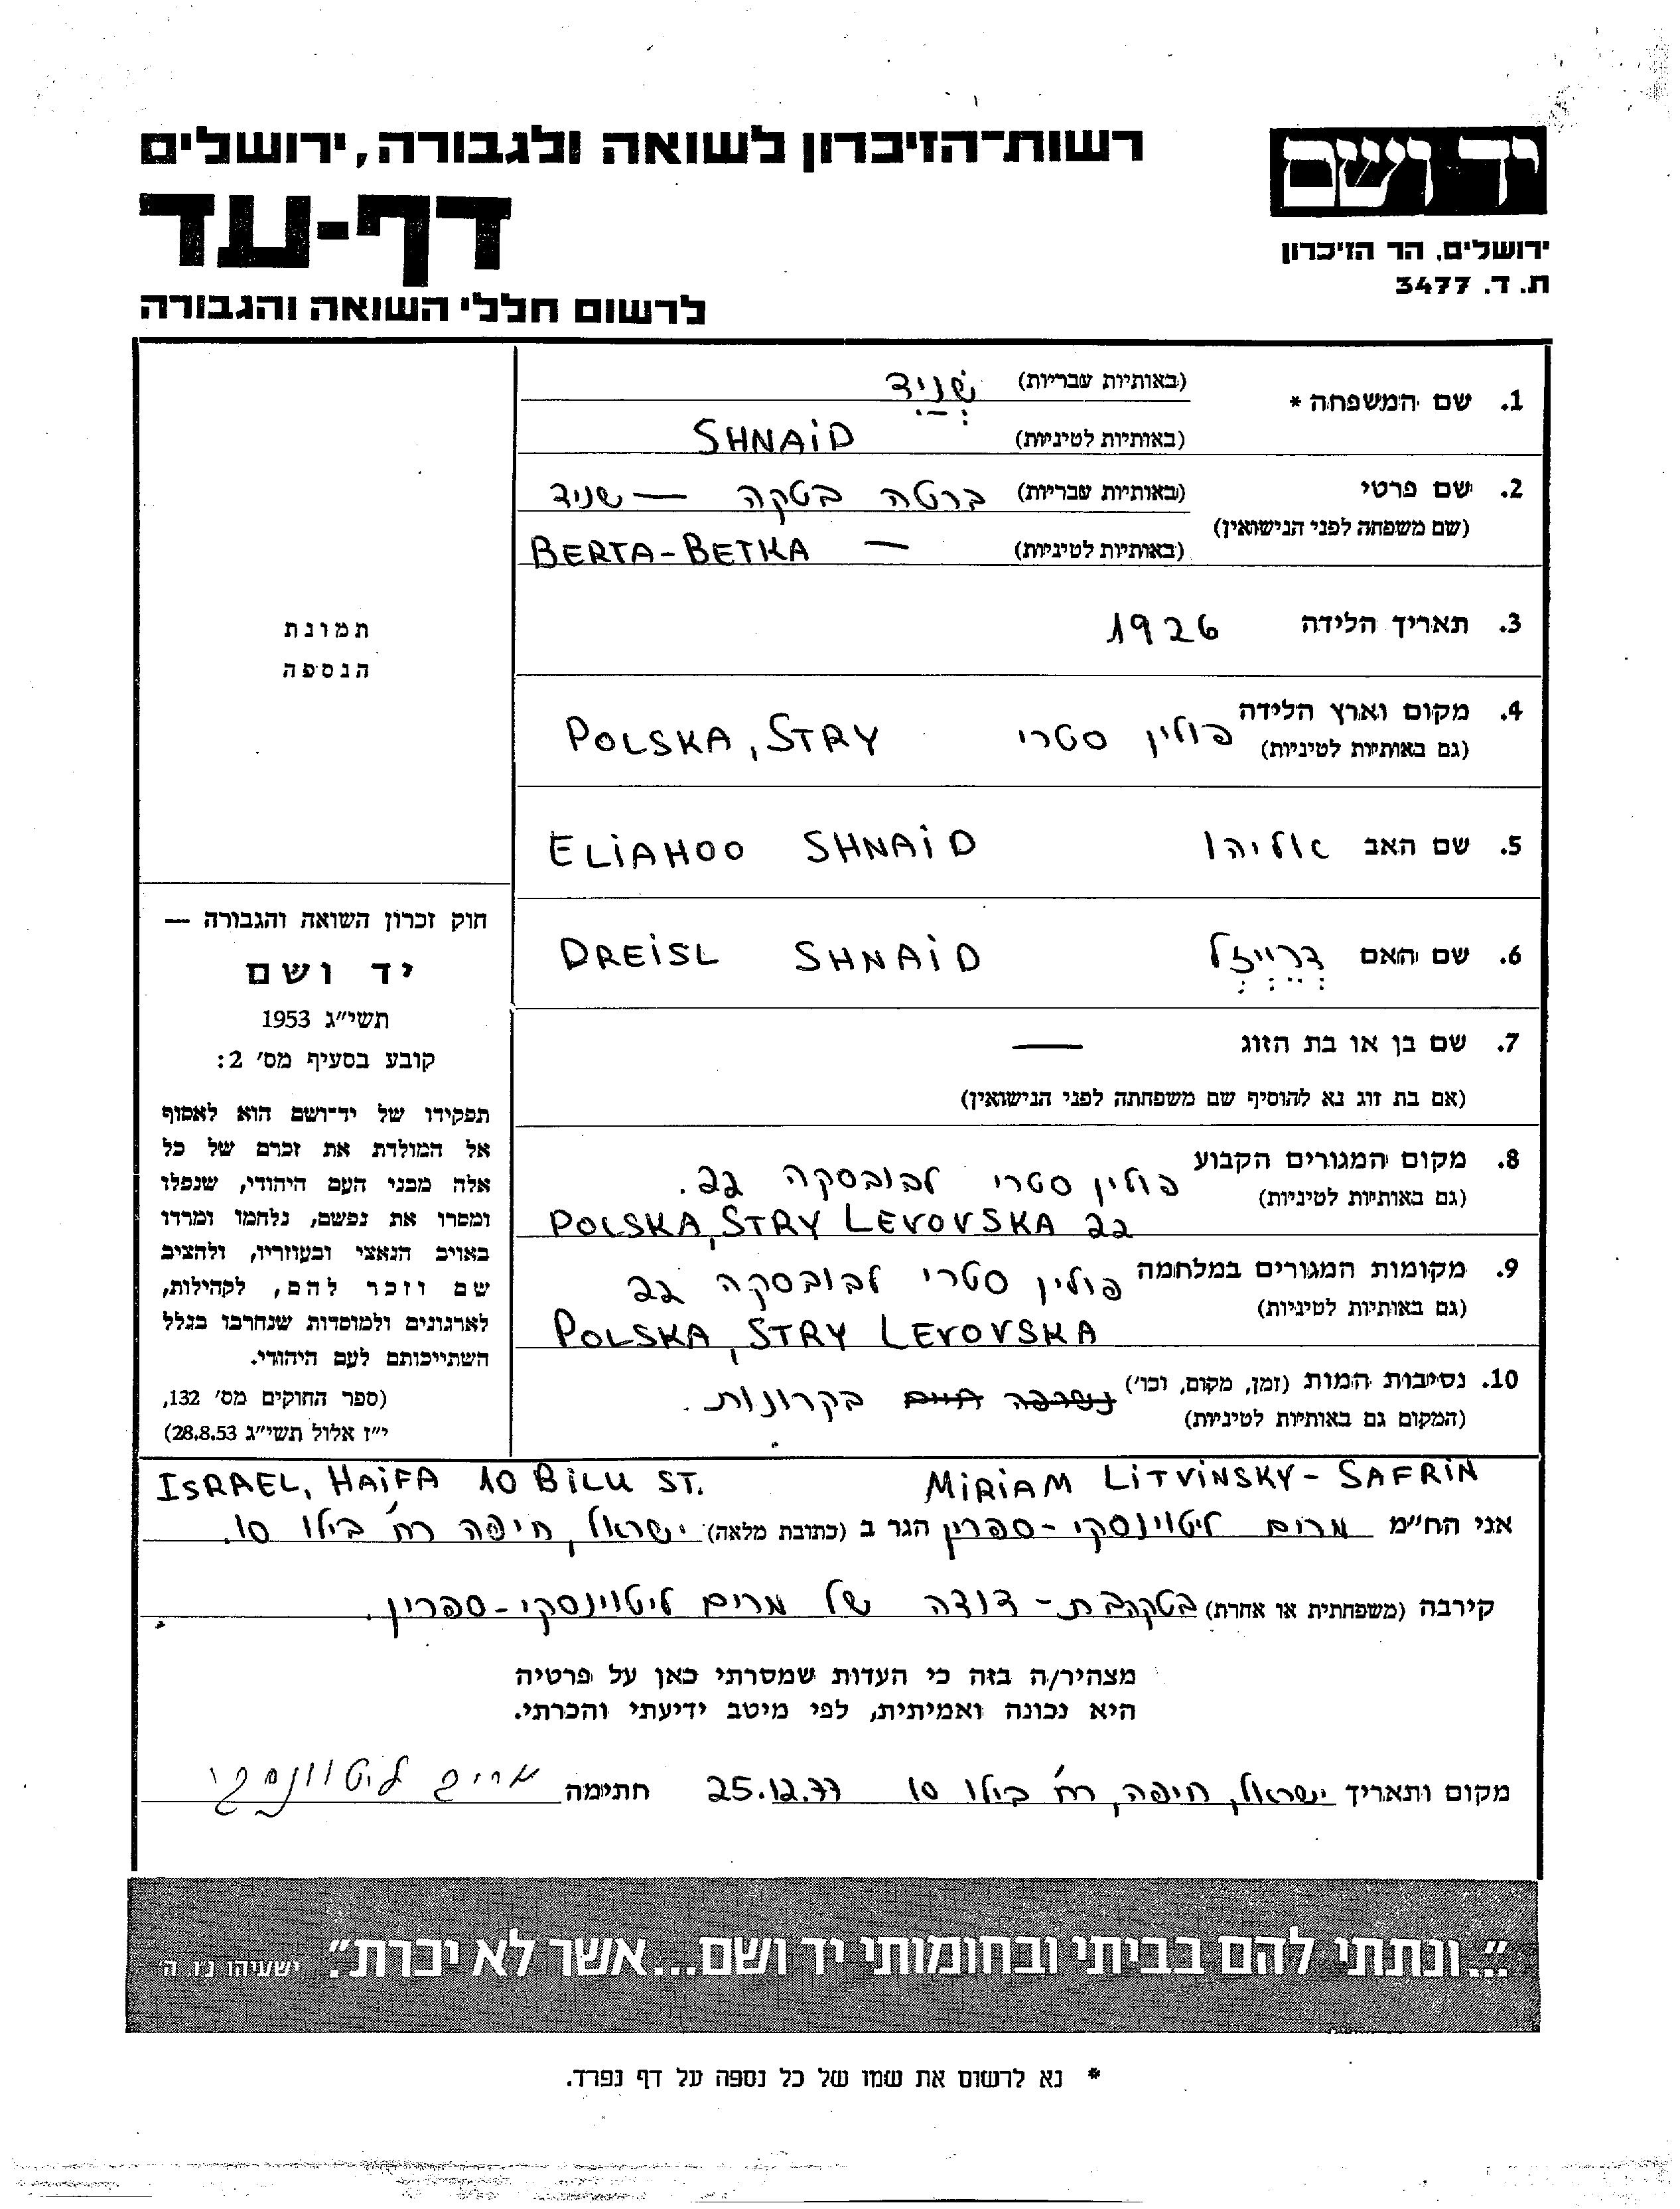 רשות־הזיכרון לשואה ולגבורה, ירושלים
יד ושם
דף-עד
ירושלים, הר הזיכרון
ת. ד. 3477
לרשום חללי השואה והגבורה
1. שם המשפחה * (באותיות עבריות) שְׁנַיְד
(באותיות לטיניות) SHNAiD
2. שם פרטי (באותיות עבריות) ברטה בטקה — שניד
(שם משפחה לפני הנישואין)
(באותיות לטיניות) BERTA-BETKA —
3. תאריך הלידה 1926
4. מקום וארץ הלידה פולין סטרי POLSKA, STRY
(גם באותיות לטיניות)
5. שם האב אליהו ELiAHOO SHNAiD
6. שם האם דְרֵייְזְל DREiSL SHNAiD
7. שם בן או בת הזוג —
(אם בת זוג נא להוסיף שם משפחתה לפני הנישואין)
8. מקום המגורים הקבוע פולין סטרי לבובסקה 22.
(גם באותיות לטיניות)
POLSKA, STRY LEVOVSKA 22
9. מקומות המגורים במלחמה פולין סטרי לבובסקה 22
(גם באותיות לטיניות)
POLSKA, STRY LEVOVSKA
10. נסיבות המות (זמן, מקום, וכו') נשרפה חיים בקרונות.
(המקום גם באותיות לטיניות)
תמונת
הנספה
חוק זכרון השואה והגבורה —
יד ושם
תשי"ג 1953
קובע בסעיף מס' 2:
תפקידו של יד־ושם הוא לאסוף
אל המולדת את זכרם של כל
אלה מבני העם היהודי, שנפלו
ומסרו את נפשם, נלחמו ומרדו
באויב הנאצי ובעוזריו, ולהציב
שם וזכר להם, לקהילות,
לארגונים ולמוסדות שנחרבו בגלל
השתייכותם לעם היהודי.
(ספר החוקים מס' 132,
י"ז אלול תשי"ג 28.8.53)
MiRiAM LiTViNSKY-SAFRiN ISRAEL, HAiFA 10 BiLU ST.
אני הח"מ מרים ליטוינסקי-ספרין הגר ב (כתובת מלאה) ישראל, חיפה רח' בילו 10.
קירבה (משפחתית או אחרת) דודה של מרים ליטוינסקי-ספרין.
מצהיר/ה בזה כי העדות שמסרתי כאן על פרטיה
היא נכונה ואמיתית, לפי מיטב ידיעתי והכרתי.
מקום ותאריך ישראל, חיפה, רח' בילו 10 25.12.77 חתימה מרים ליטוינסקי
"...ונתתי להם בביתי ובחומותי יד ושם...אשר לא יכרת". ישעיהו נ"ו, ה'
* נא לרשום את שמו של כל נספה על דף נפרד.